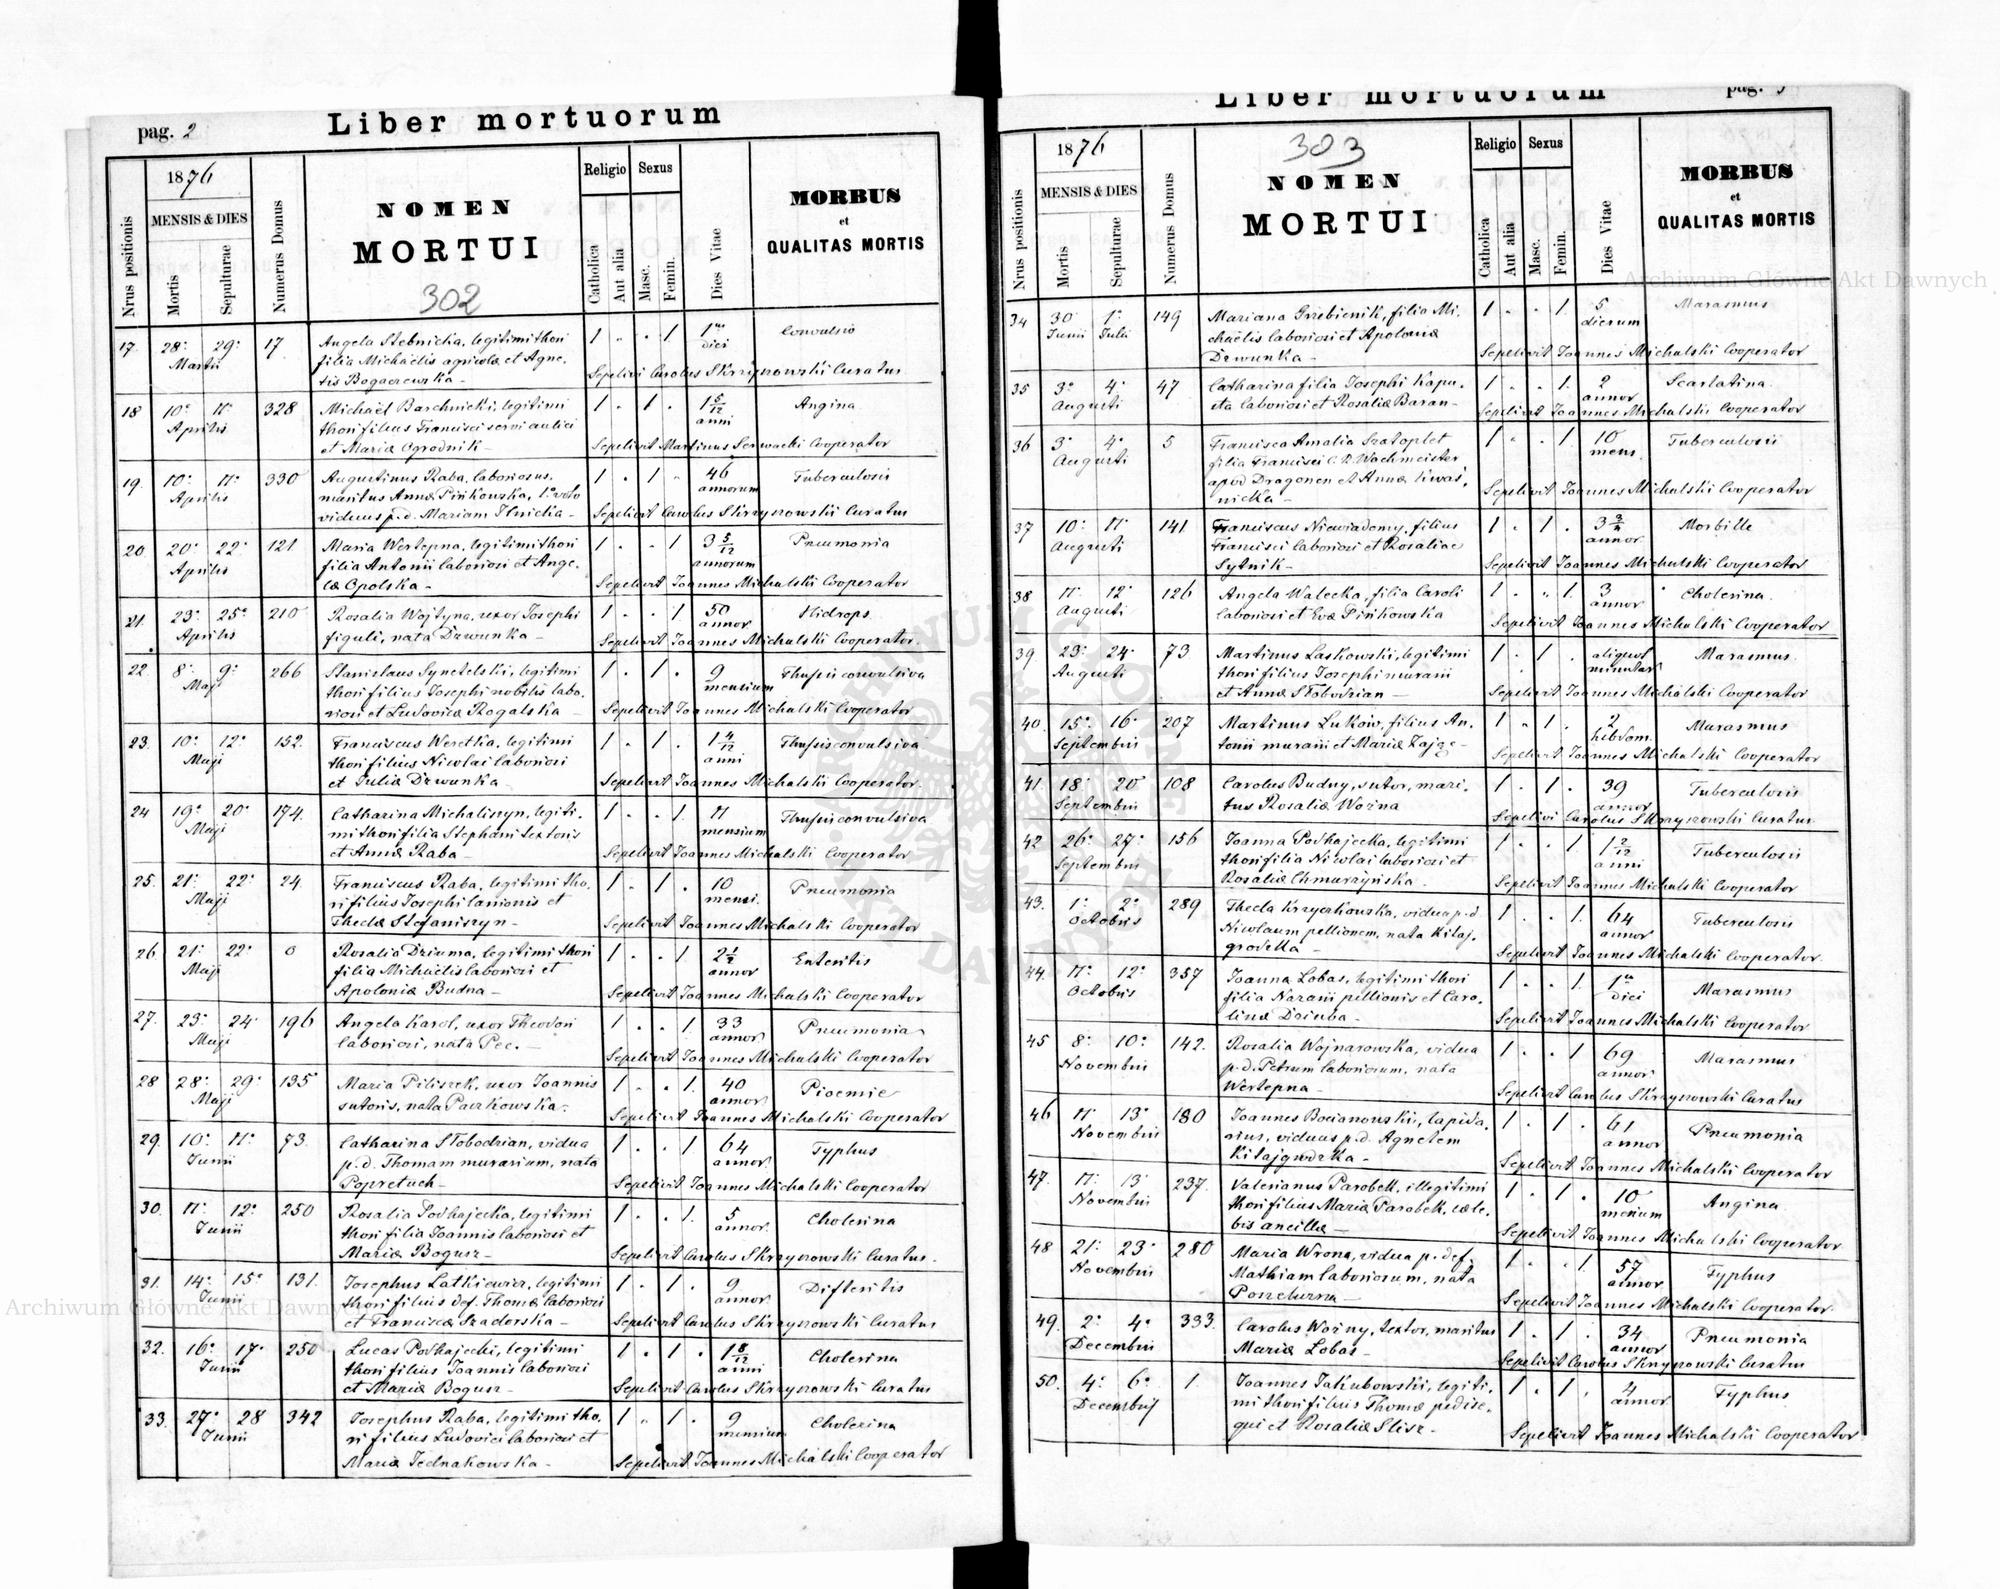 pag. 2
Liber mortuorum
Nrus positionis
1876
MENSIS & DIES
Mortis
Sepulturae
Numerus Domus
NOMEN
MORTUI
302
Religio
Catholica
Aut alia
Sexus
Masc.
Femin.
Dies Vitae
MORBUS
et
QUALITAS MORTIS
17. 28. 29. 17 Angela Stebnicka, legitimi thori 1 . . 1 1 Convulsio
Martii filia Michaëlis agricolæ et Agne- diei
tis Bogaczewska - Sepelivi Carolus Skrzyszowski Curatus
18 10. 11. 328 Michaël Barchnicki, legitimi 1 . 1 . 1 5/12 Angina
Aprilis thori filius Francisci servi aulici anni
et Mariæ Ogrodnik - Sepelivit Martinus Serwacki Cooperator
19. 10. 11. 330 Augustinus Raba, laboriosus, 1 . 1 . 46 Tuberculosis
Aprilis maritus Annæ Pińkowska, 1º voto annorum
viduus p.d. Mariam Ilnicka - Sepelivit Carolus Skrzyszowski Curatus
20 20. 22. 121 Maria Wertepna, legitimi thori 1 . . 1 3 5/12 Pneumonia
Aprilis filia Antonii laboriosi et Ange- annorum
læ Opolska - Sepelivit Joannes Michalski Cooperator
21. 23. 25. 210 Rosalia Wojtyna, uxor Josephi 1 . . 1 50 Hidrops
Aprilis figuli, nata Dzwunka - annor
Sepelivit Joannes Michalski Cooperator.
22 8. 9. 266 Stanislaus Synetelski, legitimi 1 . 1 . 9 Thussis convulsiva
Maji thori filius Josephi nobilis labo- mensium
riosi et Ludovicæ Rogalska - Sepelivit Joannes Michalski Cooperator
23. 10. 12. 152. Franciscus Weretka, legitimi 1 . 1 . 1 4/12 Thussis convulsiva
Maji thori filius Nicolai laboriosi anni
et Juliæ Dzwunka - Sepelivit Joannes Michalski Cooperator.
24 19. 20. 174. Catharina Michaliszyn, legiti- 1 . . 1. 11 Thussis convulsiva
Maji mi thori filia Stephani textoris mensium
et Annæ Raba - Sepelivit Joannes Michalski Cooperator
25. 21. 22. 24. Franciscus Raba, legitimi tho- 1 . 1 . 10 Pneumonia
Maji ri filius Josephi lanionis et mensi.
Theclæ Stefaniszyn - Sepelivit Joannes Michalski Cooperator
26 21. 22. 0 Rosalia Dziuma, legitimi thori 1 . . 1 2 1/2 Enteritis
Maji filia Michaëlis laboriosi et annor
Apoloniæ Budna - Sepelivit Joannes Michalski Cooperator
27. 23. 24. 196 Angela Karol, uxor Theodori 1 . . 1. 33 Pneumonia
Maji laboriosi, nata Pec. - annor.
Sepelivit Joannes Michalski Cooperator
28 28. 29. 135 Maria Piliszek, uxor Joannis 1 . . 1. 40 Pioemie
Maji sutoris, nata Paczkowska - annor.
Sepelivit Joannes Michalski Cooperator
29. 10. 11. 73. Catharina Słobodzian, vidua 1 . . 1 64 Typhus
Junii p.d. Thomam murarium, nata annor.
Popretuch - Sepelivit Joannes Michalski Cooperator
30. 11. 12. 250 Rosalia Podhajecka, legitimi 1 . . 1. 5 Cholerina
Junii thori filia Joannis laboriosi et annor.
Mariæ Bogusz - Sepelivit Carolus Skrzyszowski Curatus.
31. 14. 15. 131. Josephus Latkiewicz, legitimi 1 . 1 . 9 Difteritis
Junii thori filius def. Thomæ laboriosi annor.
et Franciscæ Szadorska - Sepelivit Carolus Skrzyszowski Curatus
32. 16. 17. 250 Lucas Podhajecki, legitimi 1 . 1 . 1 8/12 Cholerina
Junii thori filius Joannis laboriosi anni
et Mariæ Bogusz - Sepelivit Carolus Skrzyszowski Curatus
33. 27. 28 342 Josephus Raba, legitimi tho- 1 . 1 . 9 Cholerina
Junii ri filius Ludovici laboriosi et mensium
Mariæ Jednakowska - Sepelivit Joannes Michalski Cooperator
Liber mortuorum
pag. 3
Nrus positionis
1876
MENSIS & DIES
Mortis
Sepulturae
Numerus Domus
303
NOMEN
MORTUI
Religio
Catholica
Aut alia
Sexus
Masc.
Femin.
Dies Vitae
MORBUS
et
QUALITAS MORTIS
34 30. 1. 149 Mariana Grzebienik, filia Mi- 1 . . 1. 5 Marasmus
Junii Julii chaëlis laboriosi et Apoloniæ dierum
Dzwunka - Sepelivit Joannes Michalski Cooperator
35 3. 4. 47 Catharina filia Josephi Kapu- 1 . . 1. 2 Scarlatina.
Augusti sta laboriosi et Rosaliæ Baran - annor
Sepelivit Joannes Michalski Cooperator
36 3. 4. 5 Francisca Amalia Szatoplet 1 . . 1. 10 Tuberculosis
Augusti filia Francisci C. R. Wachmeister mens.
apud Dragonen et Annæ Kwaś-
nicka - Sepelivit Joannes Michalski Cooperator
37 10. 11. 141 Franciscus Niewiadomy, filius 1 . 1 . 3 Morbille
Augusti Francisci laboriosi et Rosaliae annor.
Sytnik - Sepelivit Joannes Michalski Cooperator
38 11. 12. 126 Angela Walecka, filia Caroli 1 . . 1. 3 Cholerina.
Augusti laboriosi et Evæ Pińkowska annor
Sepelivit Joannes Michalski Cooperator
39. 23. 24. 73 Martinus Laskowski, legitimi 1 . 1 . aliquot Marasmus.
Augusti thori filius Josephi murarii minutas
et Annæ Słobodzian - Sepelivit Joannes Michalski Cooperator
40. 15. 16. 207 Martinus Lukow, filius An- 1 . 1 . 2 Marasmus
Septembris tonii murarii et Mariæ Zając - hebdom.
Sepelivit Joannes Michalski Cooperator
41. 18. 20 108 Carolus Budny, sutor, mari- 1 . 1 . 39 Tuberculosis
Septembris tus Rosaliæ Woźna annor
Sepelivi Carolus Skrzyszowski Curatus
42 26. 27. 156 Joanna Podhajecka, legitimi 1 . . 1 1 2/12 Tuberculosis
Septembris thori filia Nicolai laboriosi et anni
Rosaliæ Chmurzyńska. Sepelivit Joannes Michalski Cooperator
43. 1. 2. 289 Thecla Krzyczkowska, vidua p.d. 1 . . 1. 64 Tuberculosis
Octobris Nicolaum pellionem, nata Kitaj- annor
grodzka - Sepelivit Joannes Michalski Cooperator.
44. 11. 12. 357 Joanna Lobas, legitimi thori 1 . . 1. 1 Marasmus
Octobris filia Nazarii pellionis et Caro- diei
linæ Dziuba - Sepelivit Joannes Michalski Cooperator
45 8. 10. 142. Rosalia Wojnarowska, vidua 1 . . 1 69 Marasmus
Novembris p.d. Petrum laboriosum, nata annor
Wertepna - Sepelivit Carolus Skrzyszowski Curatus
46 11. 13. 180 Joannes Bocianowski, lapida- 1 . 1 . 61 Pneumonia
Novembris rius, viduus p.d. Agnetem annor
Kitajgrodzka - Sepelivit Joannes Michalski Cooperator
47. 11. 13 237. Valerianus Parobek, illegitimi 1 . 1 . 10 Angina
Novembris thori filius Mariæ Parobek, cæle- mensium
bis ancillæ - Sepelivit Joannes Michalski Cooperator
48 21. 23. 280 Maria Wrona, vidua p. def. 1 . . 1. 57 Typhus
Novembris Mathiam laboriosum, nata annor
Sepelivit Joannes Michalski Cooperator.
49. 2. 4. 333. Carolus Woźny, textor, maritus 1 . 1 . 34 Pneumonia
Decembris Mariæ Lobas - annor
Sepelivit Carolus Skrzyszowski Curatus
50. 4. 6. 1. Joannes Jakubowski, legiti- 1 . 1 . 4 Typhus
Decembris mi thori filius Thomæ pedise- annor.
qui et Rosaliæ Slisz - Sepelivit Joannes Michalski Cooperator
Archiwum Główne Akt Dawnych
Archiwum Główne Akt Dawnych
ARCHIWUM GŁÓWNE AKT DAWNYCH